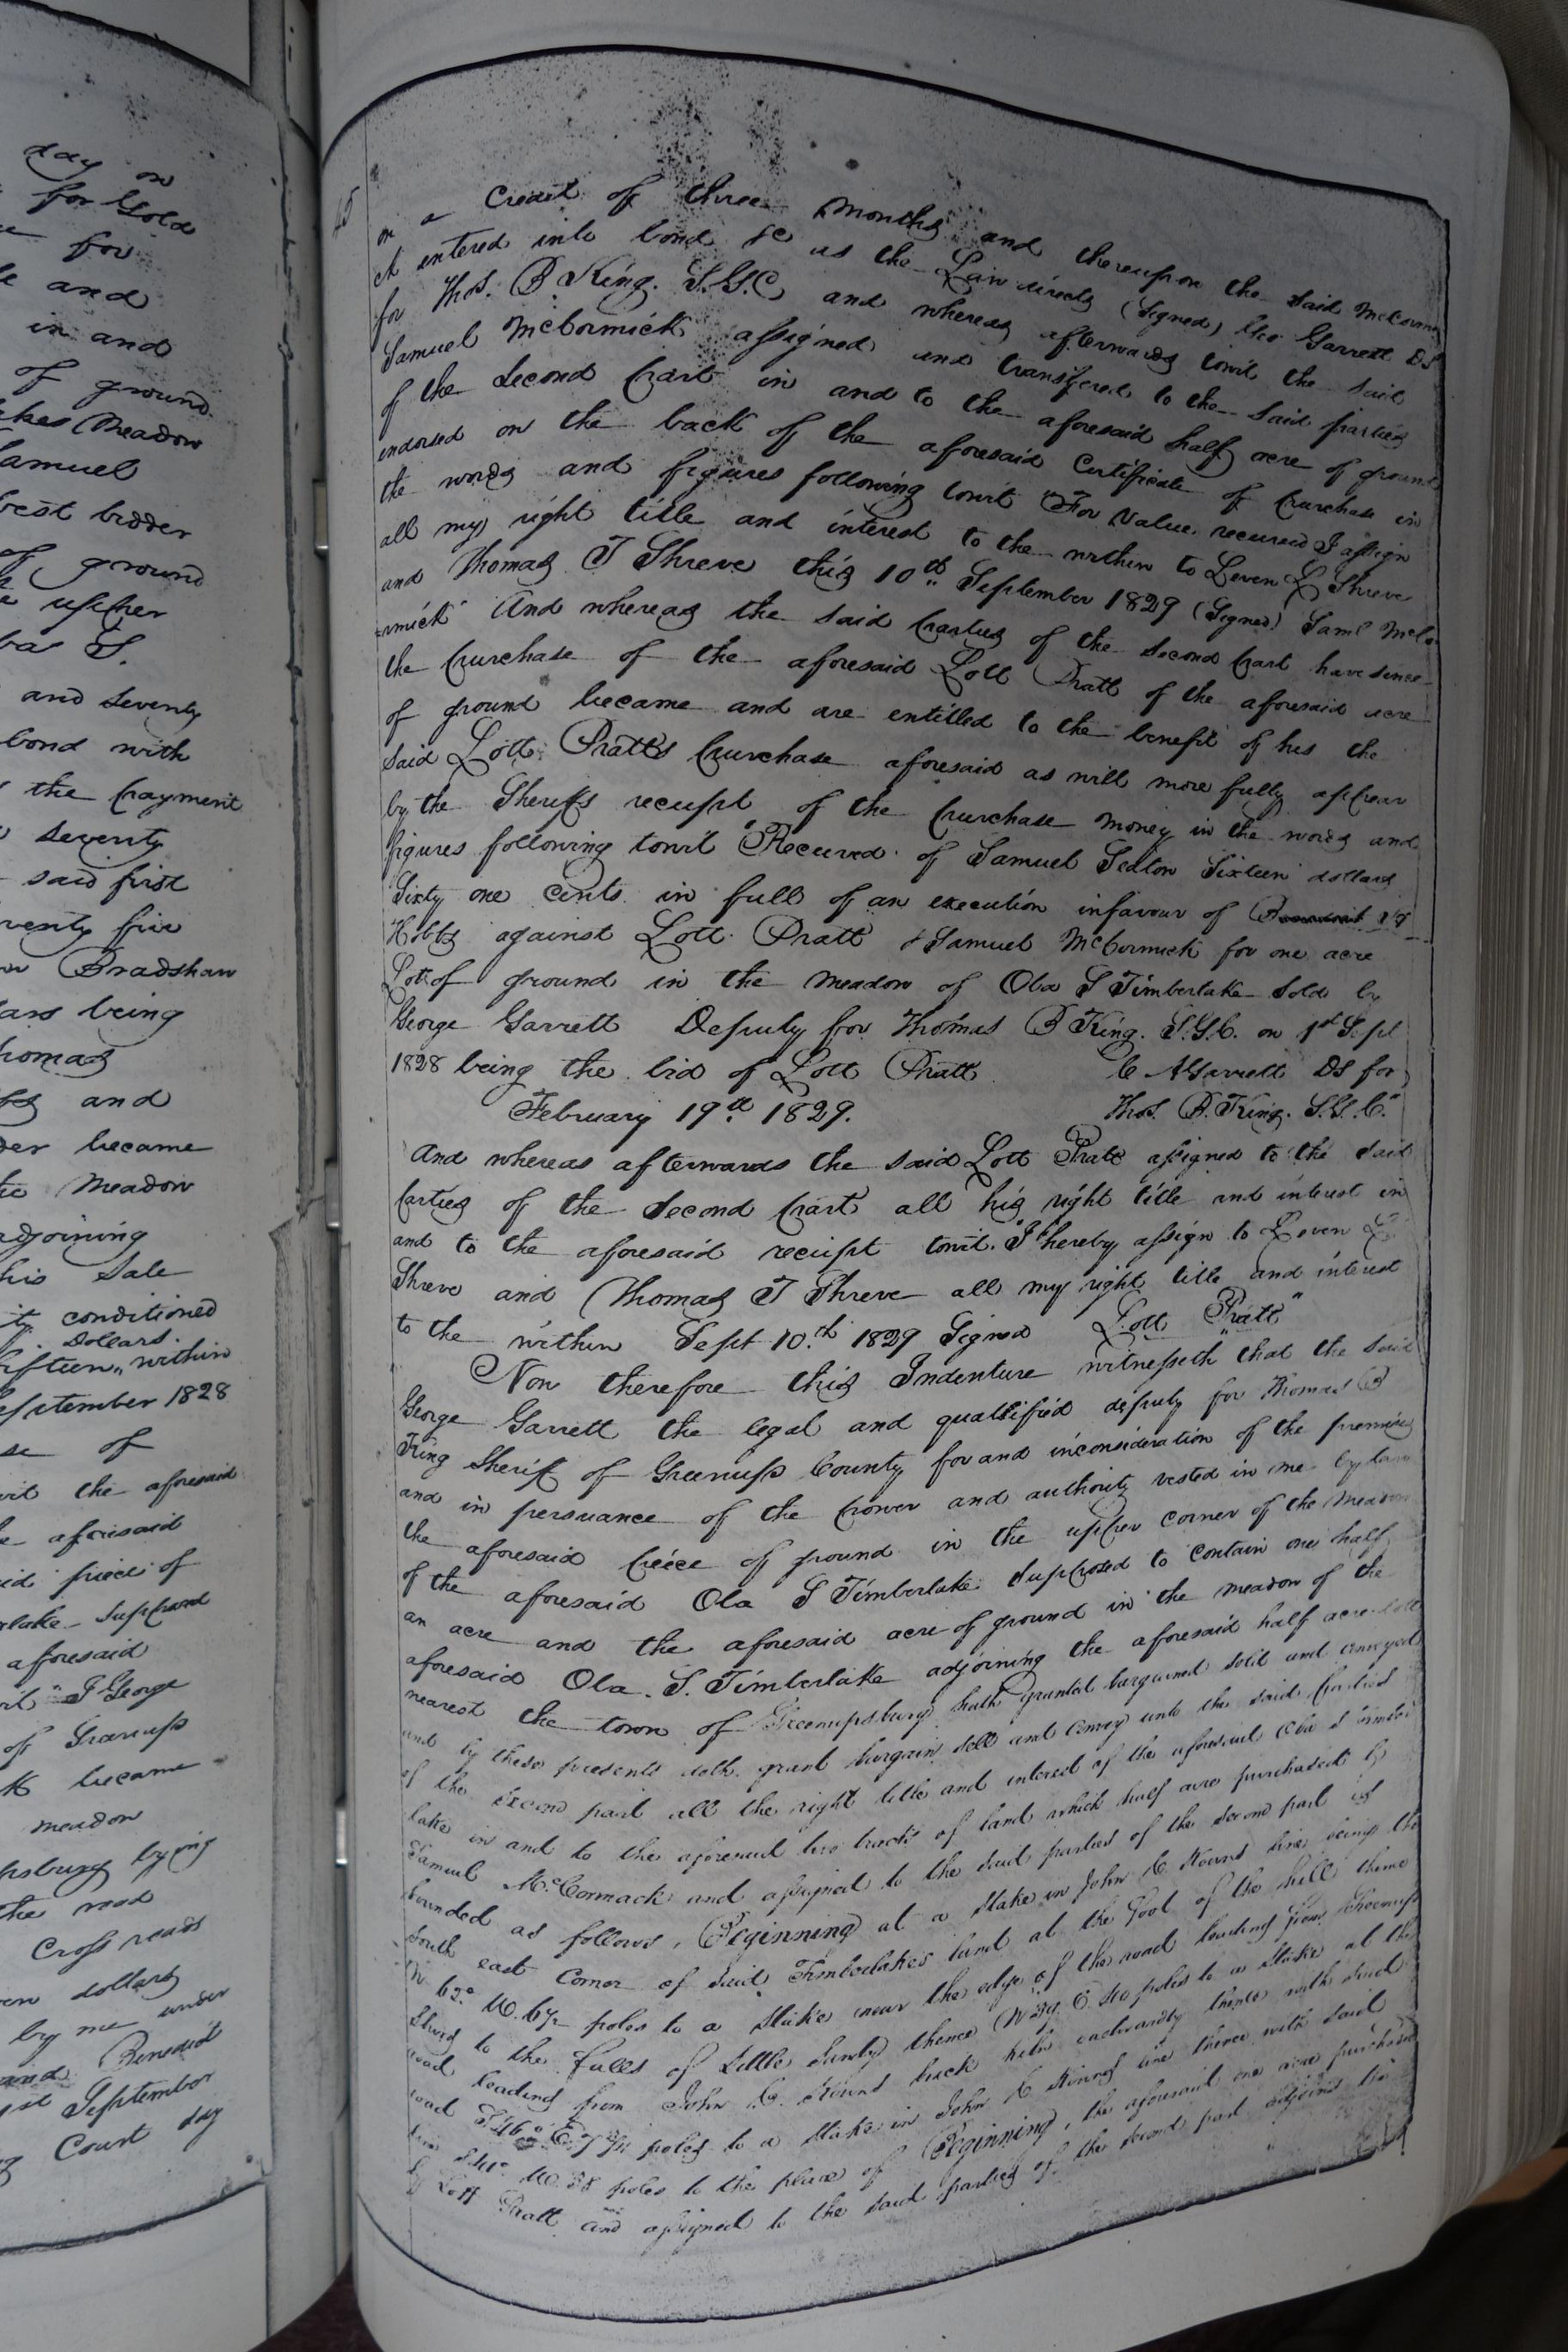 day on
for Gold
for
and
in and
of ground
Meadow
amuel
best bidder
of ground
upper
S.
and seventy
bond with
the payment
seventy
said first
venty five
Bradshaw
ars being
homas
and
der became
Meadow
adjoining
his Sale
ity conditioned
Dollars.
ifteen " within
eptember 1828
se of
vit the aforesaid
aforesaid
id piece of
rlake Supposed
aforesaid
vit "I George
of Greenup
K became
meadow
psburg lying
the road
Cross roads
en dollars
by me under
and Benedict
1st September
Court day
on a Credit of three months and thereupon the said McCorm
ck entered into bond &c as the Law directs (Signed) Geo Garrett DS
for Thos. B King. S.G.C and whereas afterwards towit the said
Samuel McCormick assigned and transfered to the said parties
of the Second part in and to the aforesaid half acre of ground
endorsed on the back of the aforesaid Certificate of purchase in
the words and figures following towit "For Value received I assign
all my right title and interest to the within to Leven L Shreve
and Thomas T Shreve this 10th September 1829 (Signed) Saml McCo-
rmick" And whereas the said parties of the Second part have since
the purchase of the aforesaid Lott Pratt of the aforesaid acre
of ground became and are entitled to the benefit of his the
said Lott Pratts purchase aforesaid as will more fully appear
by the Sheriffs receipt of the purchase money in the words and
figures following towit "Received of Samuel Seaton Sixteen dollars
Sixty one cents in full of an execution infavour of
Hobbs against Lott Pratt & Samuel McCormick for one acre
Lot of ground in the meadow of Oba S Timberlake Sold by
George Garrett Deputy for Thomas B King. S.G.C. on 1st Sept
1828 being the bid of Lott Pratt Garrett DS for
February 19th 1829. Thos. B. King. S.G.C."
And whereas afterwards the said Lott Pratt assigned to the said
parties of the Second part all his right title and interest in
and to the aforesaid receipt towit. "I hereby assign to Leven L
Shreve and Thomas T Shreve all my right title and interest
to the within Sept 10.th 1829 Signed Lott Pratt"
Now therefore this Indenture witnesseth that the said
George Garrett the legal and quallified deputy for Thomas B
King Sheriff of Greenup County for and inconsideration of the premises
and in persuance of the power and authority vested in me by law
the aforesaid peice of ground in the upper corner of the Meadow
of the aforesaid Oba S Timberlake Supposed to contain one half
an acre and the aforesaid acre of ground in the meadow of the
aforesaid Oba. S. Timberlake adjoining the aforesaid half acre lott
nearest the town of Greenupsburg hath granted bargained sold and conveyed
and by these presents doth grant bargain sell and convey unto the said parties
of the Second part all the right title and interest of the aforesaid Oba S Timber
lake in and to the aforesaid two tracts of land which half acre purchased by
Samuel McCormack and assigned to the said parties of the second part is
bounded as follows, Beginning at a Stake in John C. Kouns line, being the
South east Corner of said Timberlakes land at the foot of the hill thence
N 62° W. 6½ poles to a Stake near the edge of the road leading from Greenups
burg to the falls of Little Sandy thence poles to a Stake at the
road leading from John C. Kouns back eastwardly thence with said
road S 46° E. poles to a Stake in John C Kouns line thence with said
line W. 38 poles to the place of Beginning, the aforesaid one acre purchased
by Lott Pratt and assigned to the said parties of the second part adjoins the